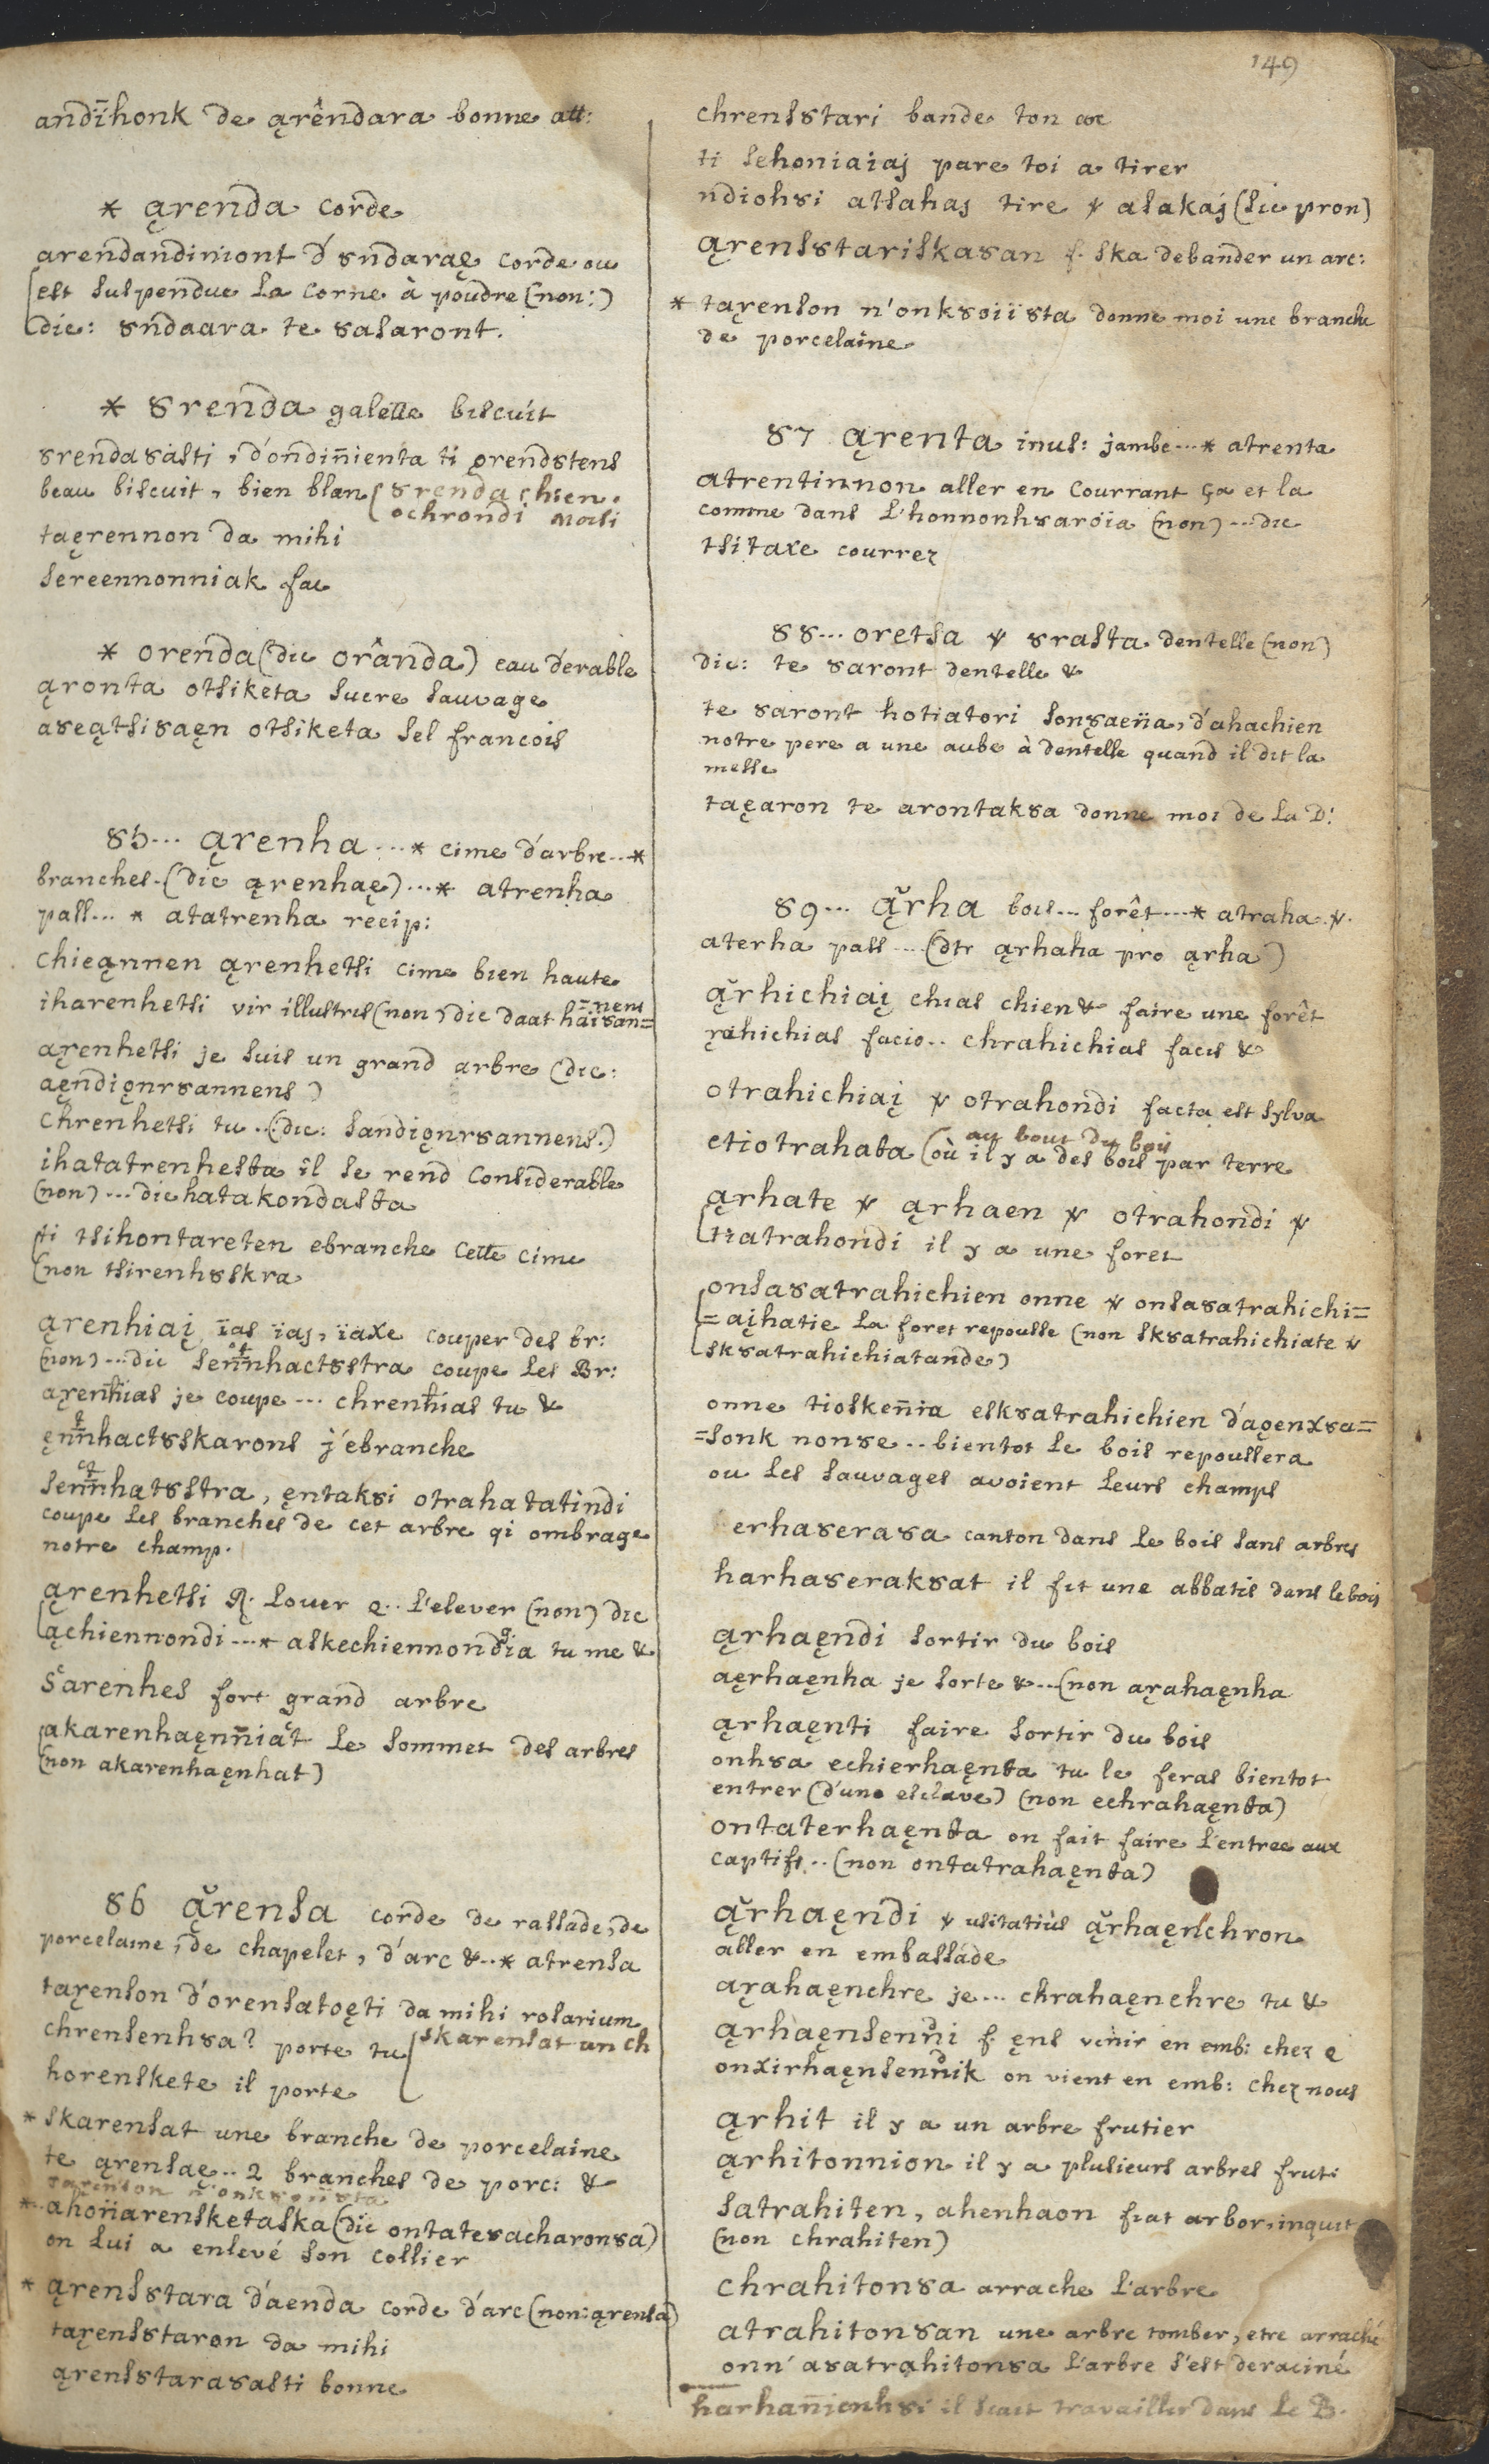 149
andīhonk de ąrêndara bonne att:
* ąrenda corde
arendandiniont d'8ndaraę corde ou
est suspendue la corne à poudre (non:)
die: 8ndaara te 8asaront.
* 8renda galette biscuit
8renda8asti, d'ondin̄ienta ti ǫrend8tens
beau biscuit, bien blan (8renda chien.
ochrondi
taęrennon da mihi
sereennonniak fac
* orenda (dic orânda) eau d'erable
ąronta otsiketa sucre sauvage
a8eątsi8aęn otsiketa sel francois
85... ąrenha ...* cime d'arbre...*
branches. (dic ąrenhaę) ...* atrenha
pass... * atatrenha recip:
chieąnnen ąrenhetsi cime bien haute
=nens
iharenhetsi vir illustris (non) dic daat hai8an=
aąrenhetsi je suis un grand arbre (dic:
aęndiǫnr8annens)
chrenhetsi tu ..(dic: sandiǫnr8annens.)
ihatatrenhesta il se rend considerable
(non) ... dic hatakondasta
ti tsihontareten ebranche cette cime
(non tsirenh8skra
ąrenhiaį ïas ïaj, ïaxe couper des br:
(non) ... dic sennhacts8tra coupe les Br:
aąrenhias je coupe ... chrenhias tu &
ęnnhacts8karons j'ebranche
sennhats8tra, ęntak8i otrahatatindi
coupe les branches de cet arbre qi ombrage
notre champ.
ąrenhetsi R. louer q.. l'elever (non) dic
ąchiennondi ...* askechiennondia tu me &
8arenhes fort grand arbre
akarenhaęnniat le sommet des arbres
(non akarenhaęnhat)
86 ąrensa corde de rassade, de
porcelaine, de chapelet, d'arc &..* atrensa
taąrenson d'orensatoęti da mihi rosarium
chrensenh8a? porte tu (skarensat un ch
horenskete il porte
* skarensat une branche de porcelaine
te ąrensaę.. 2 branches de porc: &
* ahon̈arensketaska (dic ontate8acharon8a)
on lui a enlevé son collier
* ąrens8tara d'aenda corde d'arc (non: ąrensa)
taąrens8taron da mihi
ąrens8tara8asti bonne
chrens8tari bande ton arc
ti sehoniaiaj pare toi a tirer
ndioh8i atsahaj tire & asakaj (sic pron)
ąrens8tariska8an f. ska debander un arc:
* taąrenson n'onk8oii8ta donne moi une branche
de porcelaine
87 ąrenta inus: jambe...* atrenta
atrentinnon aller en courrant ça et la
comme dans l'honnonh8aröia (non) ... dic
tsitaxe courrez
88... oretsa & 8rasta dentelle (non)
dic: te 8aront dentelle &
te 8aront hotiatori son8aen̈a, d'ahachien
notre pere a une aube à dentelle quand il dit la
messe
taęaron te arontak8a donne moi de la D:
89... ąrha bois... forêt...* atraha &.
aterha pass ... (dtr ąrhaha pro ąrha)
ąrhichiaį chias chien & faire une forêt
rąhichias facio.. chrahichias facis &
otrahichiaį & otrahondi facta est sylva
au bout du bois
etiotrahata (où il y a des bois par terre
ąrhate & ąrhaen & otrahondi &
tiatrahondi il y a une foret
onsa8atrahichien onne & onsa8atrahichi=
=aįhatie la foret repousse (non sk8atrahichiate &
sk8atrahichiatande)
onne tiosken̄ia esk8atrahichien d'aǫenx8a=
=sonk non8e.. bientot le bois repoussera
ou les sauvages avoient leurs champs
erha8era8a canton dans le bois sans arbres
harha8erak8at il fit une abbatis dans le bois
ąrhaęndi sortir du bois
aęrhaęnha je sorte &...(non aąrahaęnha
ąrhaęnti faire sortir du bois
onh8a echierhaęnta tu le feras bientot
entrer (d'une esclave) (non echrahaęnta)
ontaterhaęnta on fait faire l'entree aux
captifs.. (non ontatrahaęnta)
ąrhaęndi & usitatiùs ąrhaęnchron
aller en embassade
aąrahaęnchre je... chrahaęnchre tu &
ąrhaęnsenni f. ęns venir en emb: chez q
onxirhaęnsennik on vient en emb: chez nous
ąrhit il y a un arbre frutier
ąrhitonnion il y a plusieurs arbres frut:
satrahiten, ahenhaon fiat arbor, inquit
(non chrahiten)
chrahiton8a arrache l'arbre
atrahiton8an une arbre tomber, etre arraché
onn' a8atrahiton8a l'arbre s'est deraciné
harhan̄ionh8i il scait travailler dans le B.